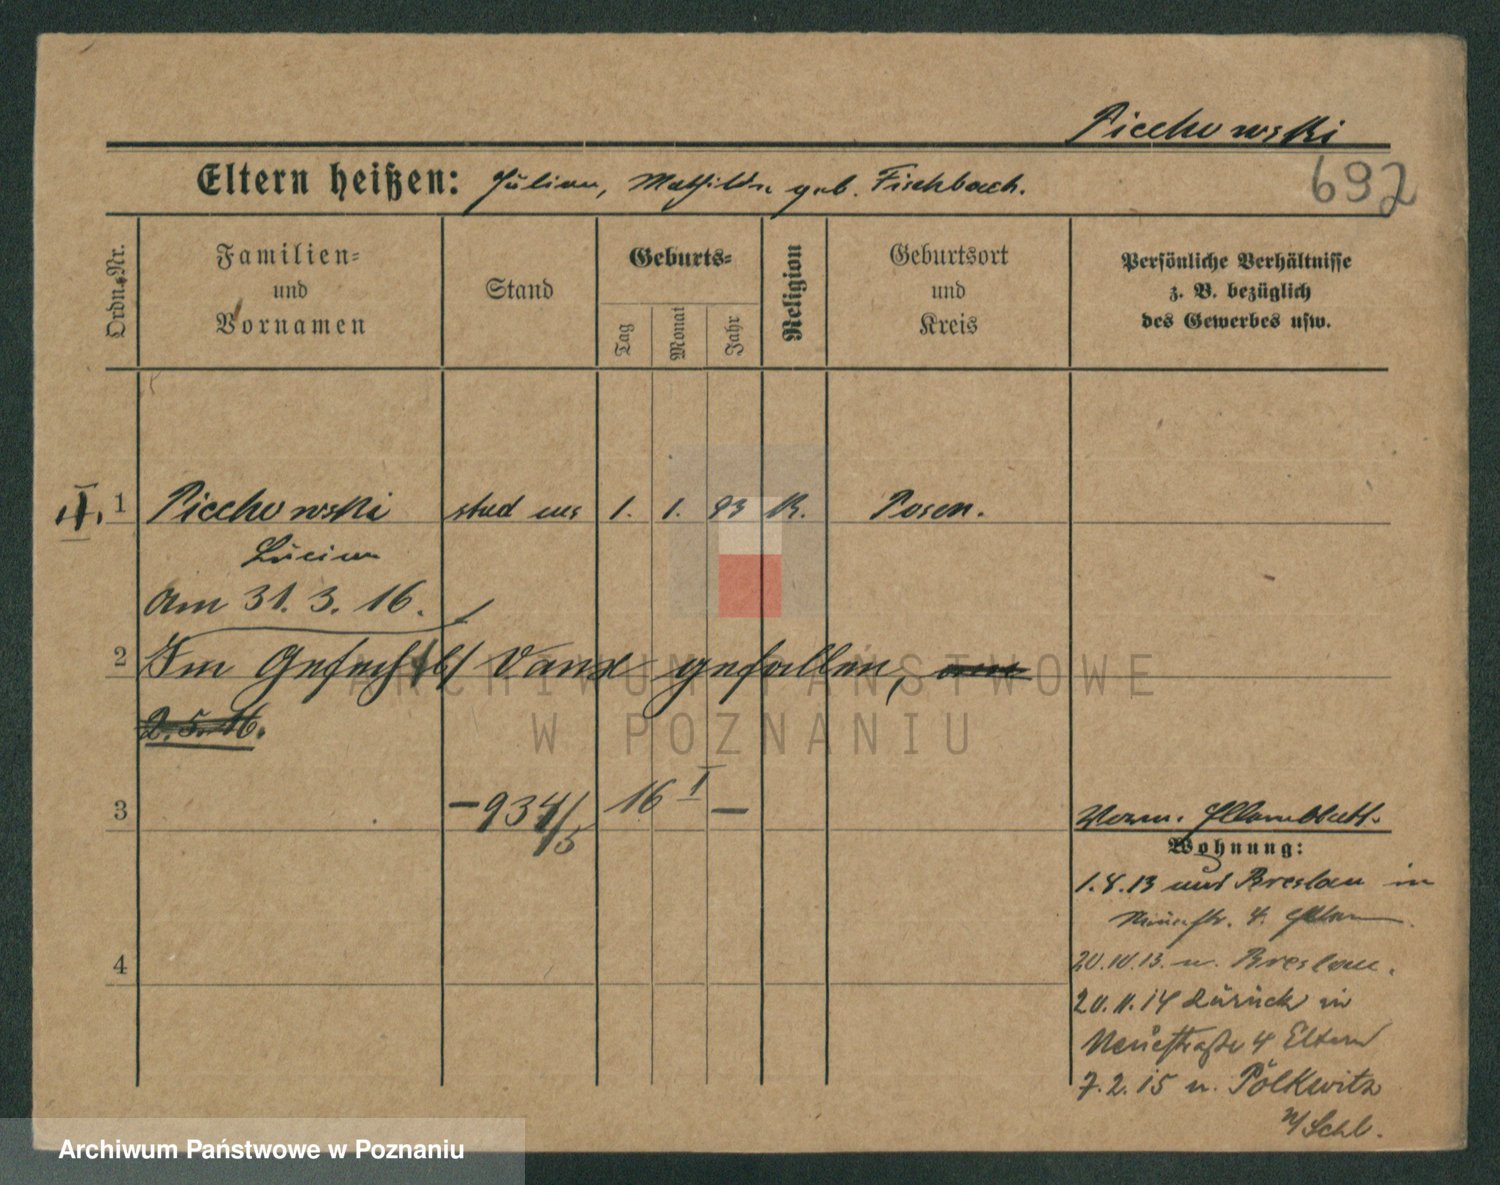 Piechowski
692
Eltern heißen: Julian, Mathilde geb. Fischbach.
Ordn.-Nr.
Familien-
und
Vornamen
Stand
Geburts-
Tag
Monat
Jahr
Religion
Geburtsort
und
Kreis
Persönliche Verhältnisse
z. B. bezüglich
des Gewerbes usw.
1 Piechowski 1. 1. 93 K. Posen.
Lucian
Am 31. 3. 16.
2 Im Gefecht b/ Vaux gefallen,
2. 5. 16.
3 – 934/5 16 I –
Verm. Stammblatt.
Wohnung:
1.8.13 aus Breslau in
4.
20.10.13. n. Breslau.
20.11.14 zurück in
Neuestraße 4 Eltern
7.2.15 n. Polkwitz
n/Schl.
4
ARCHIWUM PAŃSTWOWE
W POZNANIU
Archiwum Państwowe w Poznaniu